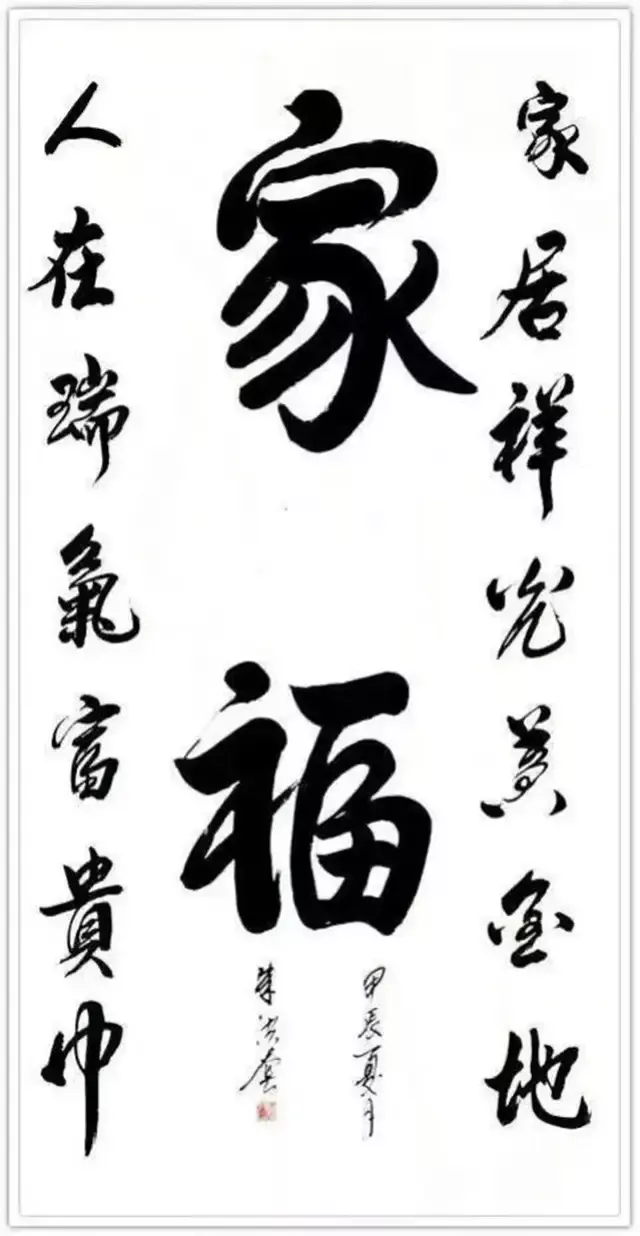 家居祥光黃金地
家福
人在瑞氣富貴中
甲辰夏月
朱洪